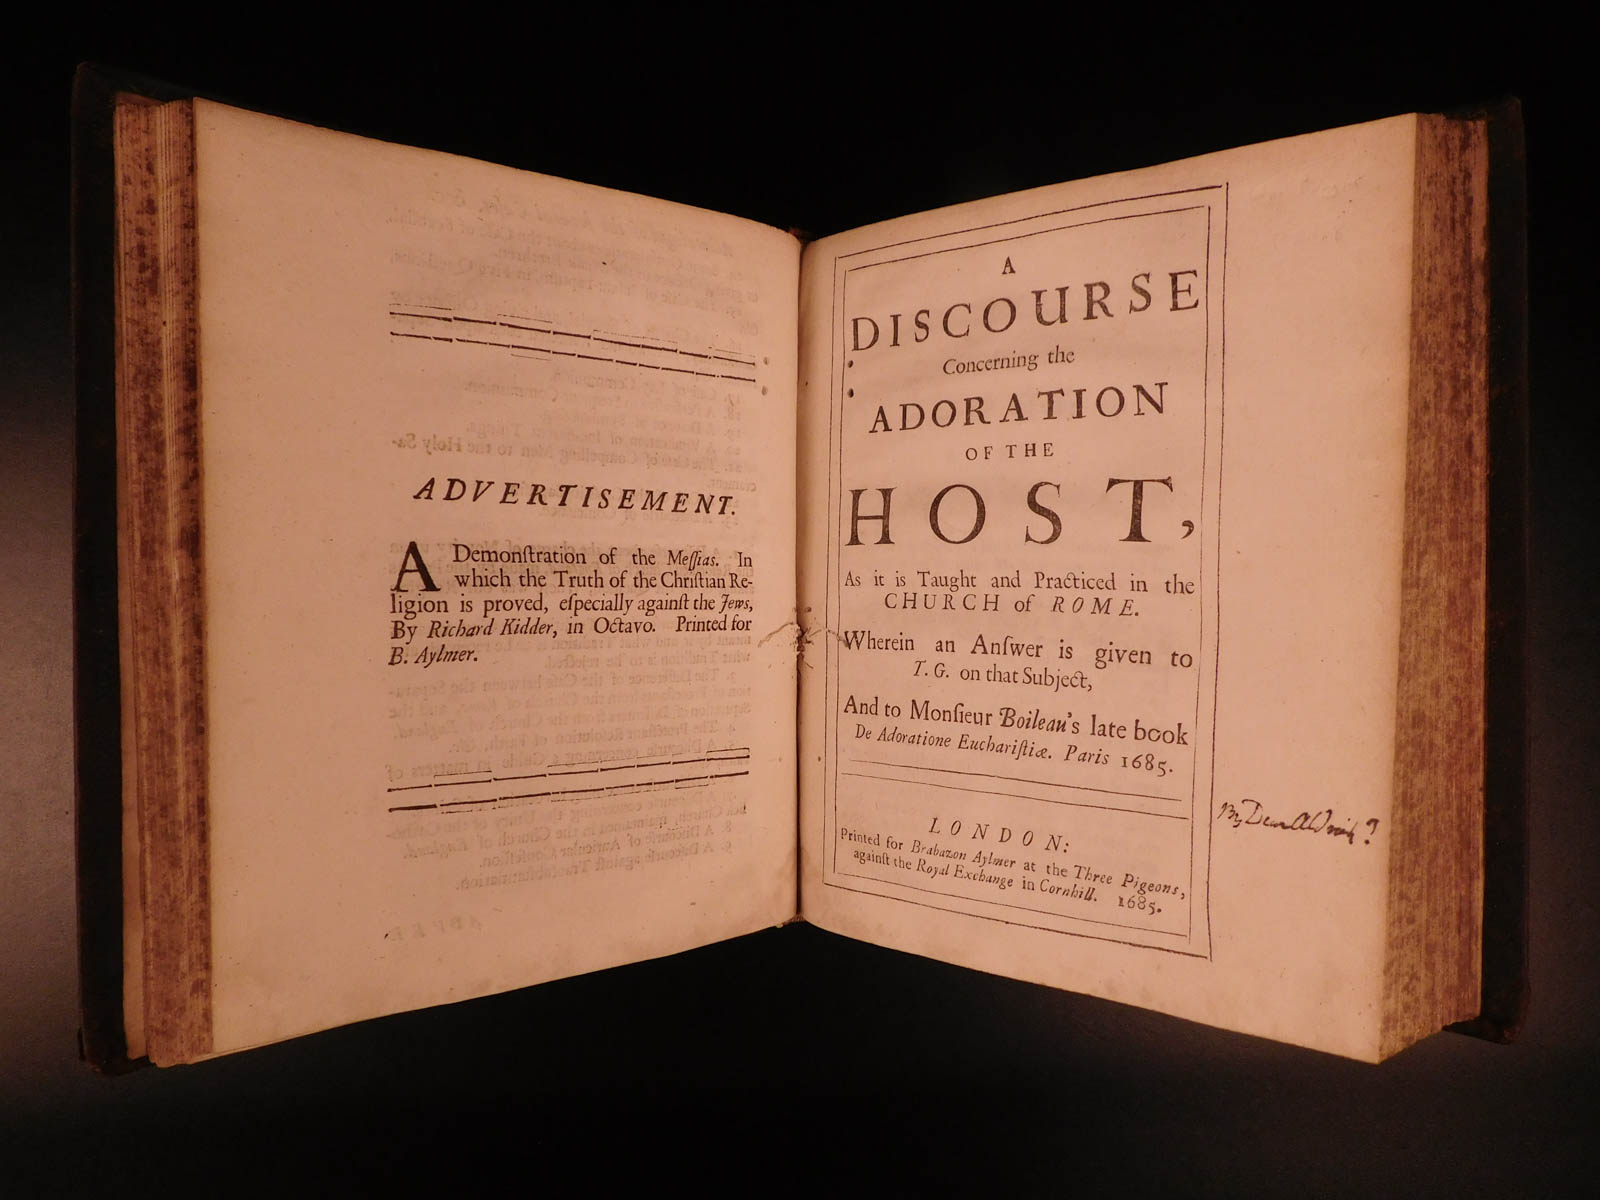 ADVERTISEMENT.
A Demonſtration of the Meſſias. In
which the Truth of the Chriſtian Re-
ligion is proved, eſpecially againſt the Jews,
By Richard Kidder, in Octavo. Printed for
B. Aylmer.
A
DISCOURSE
Concerning the
ADORATION
OF THE
HOST,
As it is Taught and Practiced in the
CHURCH of ROME.
Wherein an Anſwer is given to
T. G. on that Subject,
And to Monſieur Boileau's late book
De Adoratione Euchariſtiæ. Paris 1685.
LONDON:
Printed for Brabazon Aylmer at the Three Pigeons,
againſt the Royal Exchange in Cornhill. 1685.
By Dean